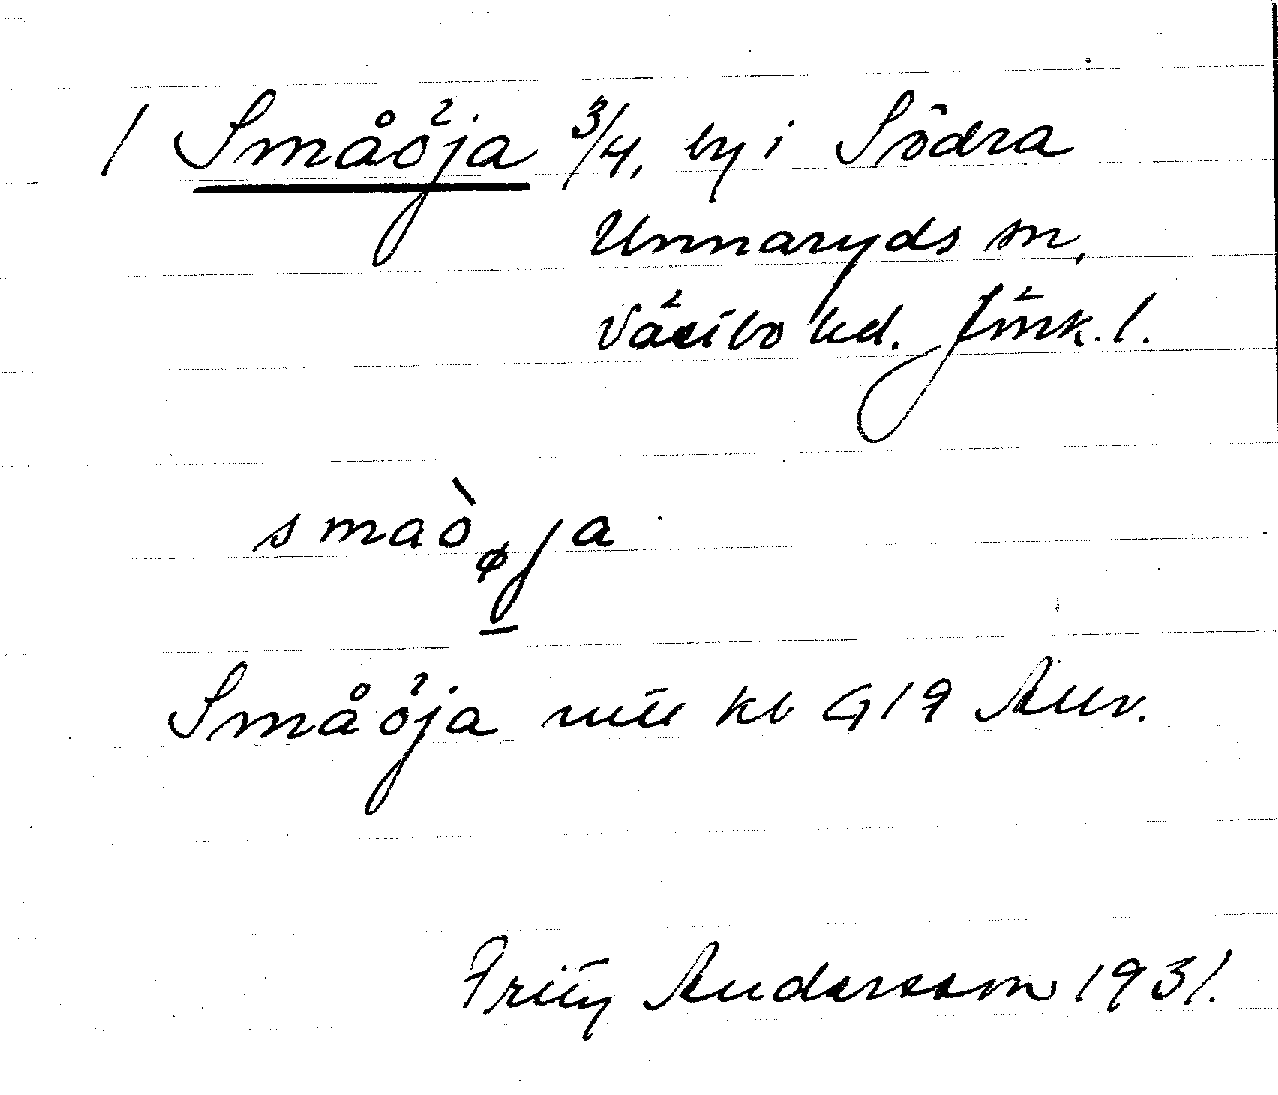 / Småöja 3/4, by i Södra
Unnaryds sn,
Västbo hd. Jönk. l.
smaòøja
Småöja mtl kb G19 Aur.
Fritz Andersson 1931.